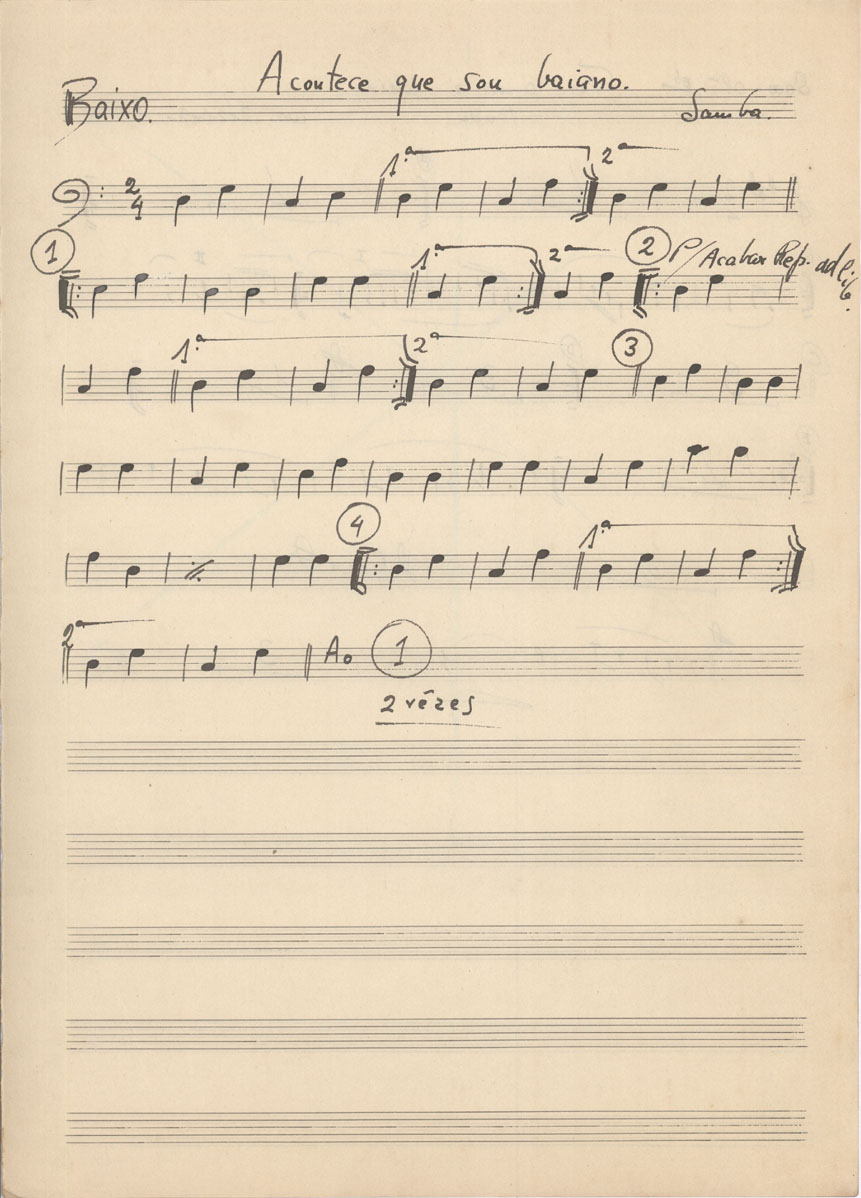 Acontece que sou baiano.
Baixo.
Samba.
2/4 1ª 2ª
1 1ª 2ª 2 P/ Acabar Rep. ad lib.
1ª 2ª 3
4 1ª
2ª Ao 1
2 vêzes